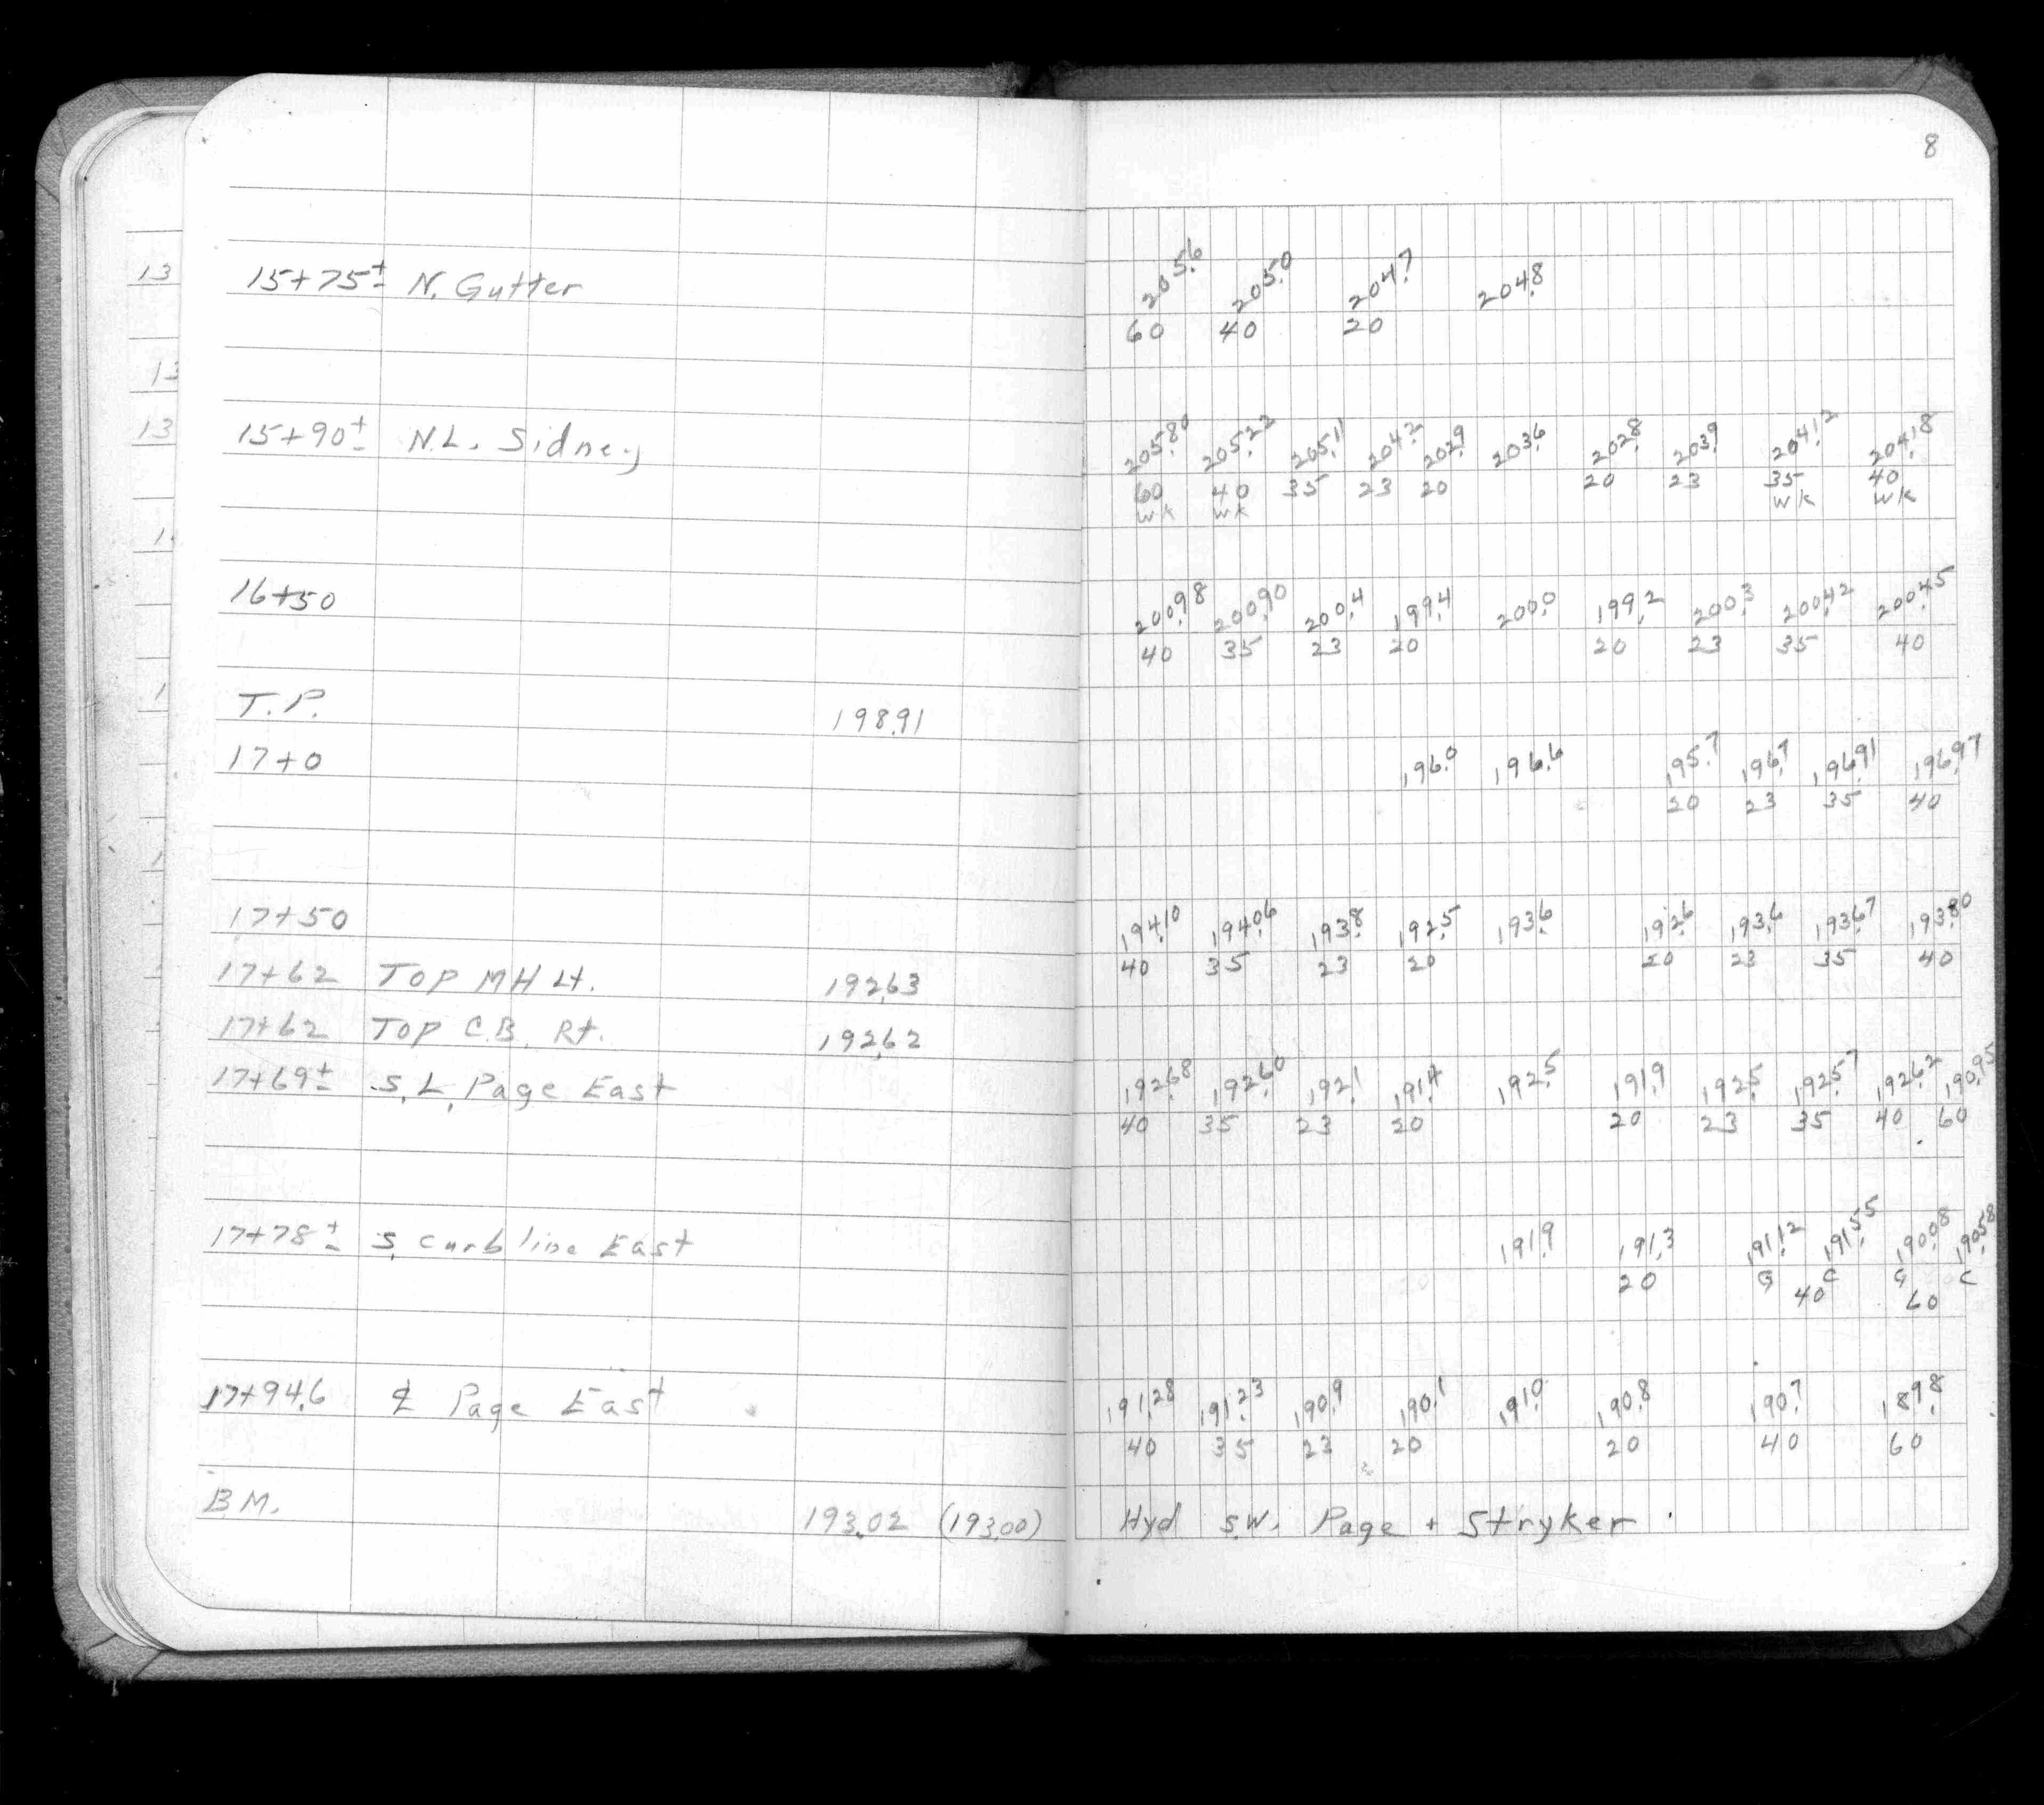 8
15+75± N. Gutter 205.6 205.0 204.7 204.8
60 40 20
15+90± N.L. Sidney 205.80 205.22 205.1 204.2 202.9 203.6 202.8 203.9 204.12 204.18
60 40 35 23 20 20 23 35 40
WK WK WK WK
16+50 200.98 200.90 200.4 199.4 200.0 199.2 200.3 200.42 200.45
40 35 23 20 20 23 35 40
T.P. 198.91
17+0 196.0 196.6 195.7 196.7 196.91 196.97
20 23 35 40
17+50 194.10 194.06 193.8 192.5 193.6 192.6 193.6 193.67 193.80
40 35 23 20 20 23 35 40
17+62 Top MH Lt. 192.63
17+62 Top C.B. Rt. 192.62
17+69± S.L. Page East 192.68 192.60 192.1 191.4 192.5 191.9 192.5 192.57 192.62 190.95
40 35 23 20 20 23 35 40 60
17+78± S. Curb line East 191.9 191.3 191.12 191.55 190.08 190.58
20 G C G C
40 60
17+94.6 ⅊ Page East 191.28 191.23 190.9 190.1 191.0 190.8 190.7 189.8
40 35 23 20 20 40 60
B.M. 193.02 (193.00) Hyd S.W. Page + Stryker